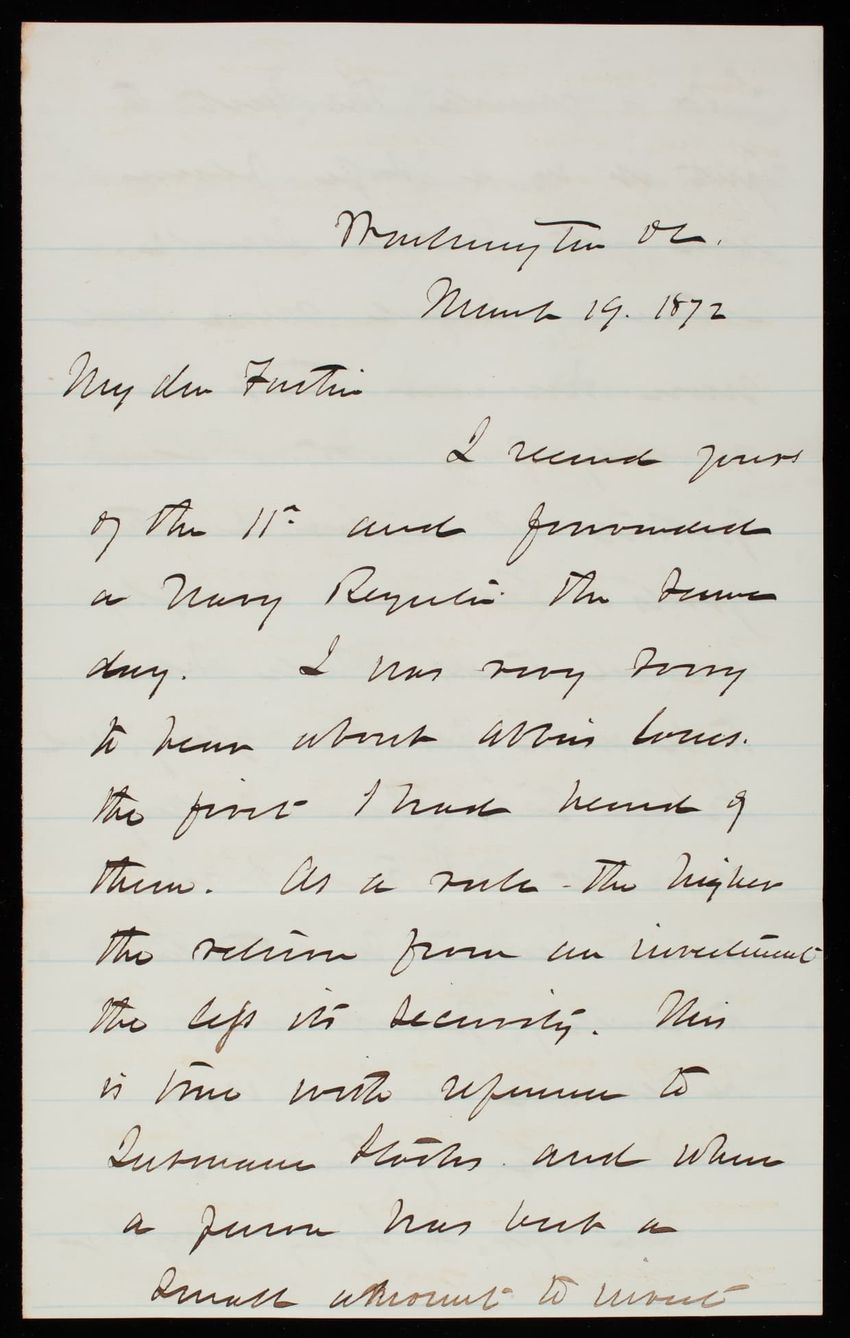 Washington DC.
March 19. 1872
My dear
I received yours
of the 11th and forwarded
a Navy Register the same
day. I was very sorry
to hear about Abbies losses.
the first I had heard of
them. As a rule - the higher
the return from an investment
the less its security. This
is true with reference to
Insurance Stocks. and when
a person has but a
small amount to invest